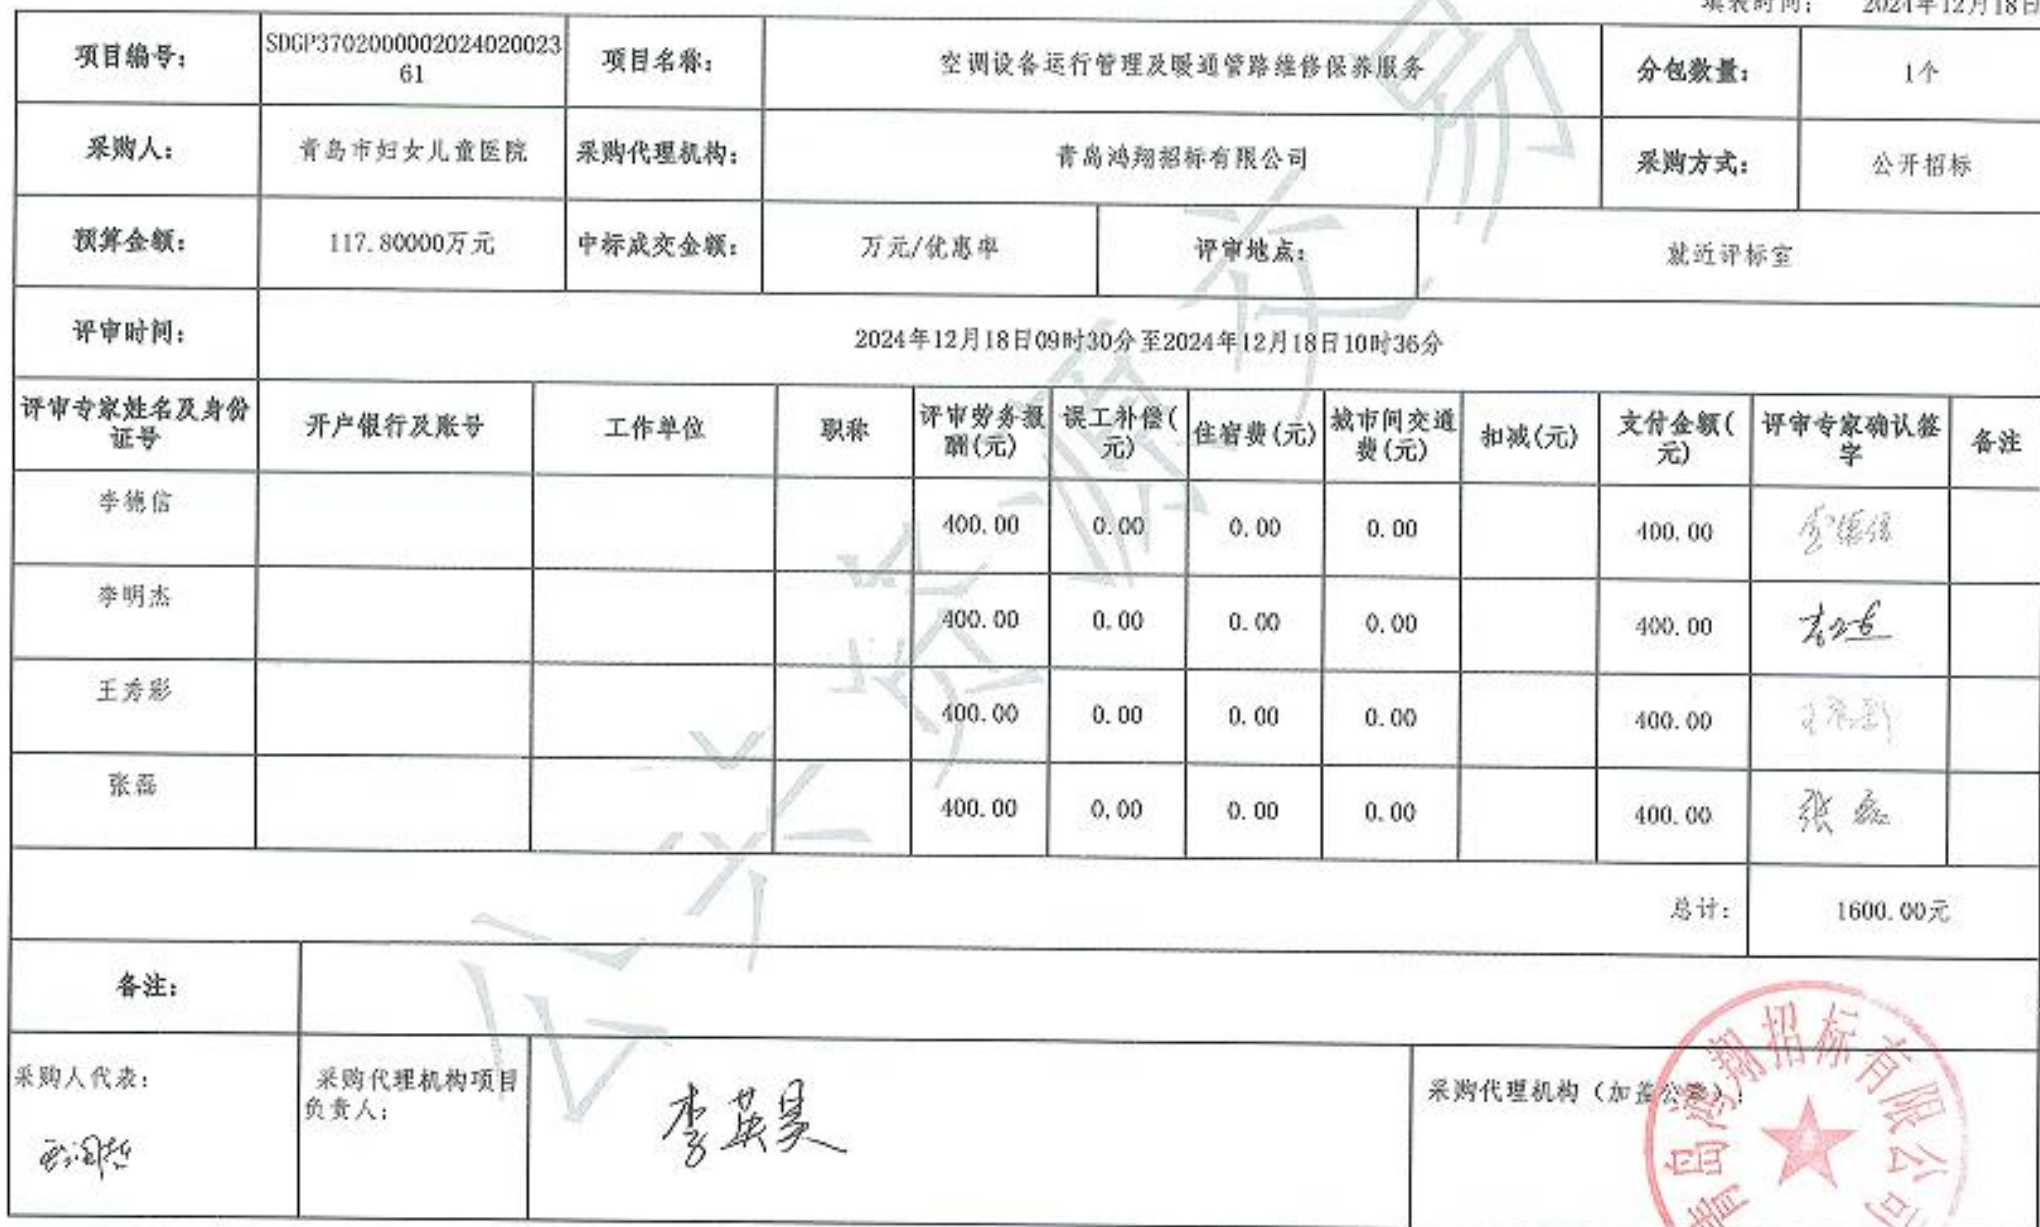 填表时间： 2024年12月18日
项目编号： SDGP3702000002024020023
61 项目名称： 空调设备运行管理及暖通管路维修保养服务 分包数量： 1个
采购人： 青岛市妇女儿童医院 采购代理机构： 青岛鸿翔招标有限公司 采购方式： 公开招标
预算金额： 117.80000万元 中标成交金额： 万元/优惠率 评审地点： 就近评标室
评审时间： 2024年12月18日09时30分至2024年12月18日10时36分
评审专家姓名及身份
证号 开户银行及账号 工作单位 职称 评审劳务报
酬(元) 误工补偿(
元) 住宿费(元) 城市间交通
费(元) 扣减(元) 支付金额(
元) 评审专家确认签
字 备注
李德信 400.00 0.00 0.00 0.00 400.00 李德信
李明杰 400.00 0.00 0.00 0.00 400.00
王秀彩 400.00 0.00 0.00 0.00 400.00 王秀彩
张磊 400.00 0.00 0.00 0.00 400.00 张磊
总计： 1600.00元
备注：
采购人代表：
采购代理机构项目
负责人：
李英昊
采购代理机构（加盖公章）：
青岛鸿翔招标有限公司
公共资源交易